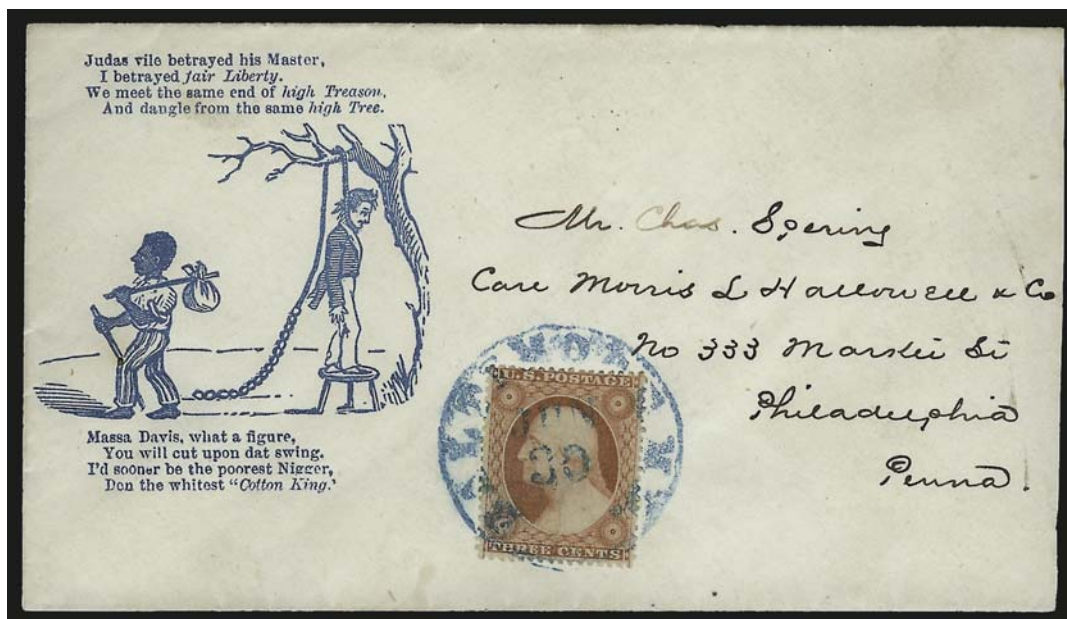 Judas vile betrayed his Master,
I betrayed fair Liberty.
We meet the same end of high Treason,
And dangle from the same high Tree.
Massa Davis, what a figure,
You will cut upon dat swing.
I'd sooner be the poorest Nigger,
Den the whitest "Cotton King."
Mr. Chas. Spering
Care Morris L Hallowell & Co
No 333 Market St
Philadelphia
Penna.
U.S. POSTAGE
20
THREE CENTS